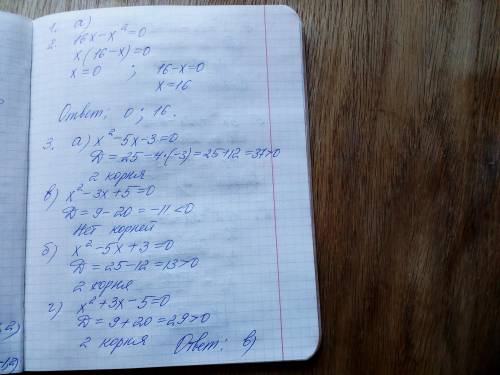 1. а)
2. 16x-x²=0
x(16-x)=0
x=0 ; 16-x=0
x=16
Ответ: 0; 16.
3. а) x²-5x-3=0
Д=25-4·(-3)=25+12=37>0
2 корня
в) x²-3x+5=0
Д=9-20=-11<0
Нет корней
б) x²-5x+3=0
Д=25-12=13>0
2 корня
г) x²+3x-5=0
Д=9+20=29>0
2 корня Ответ: в)